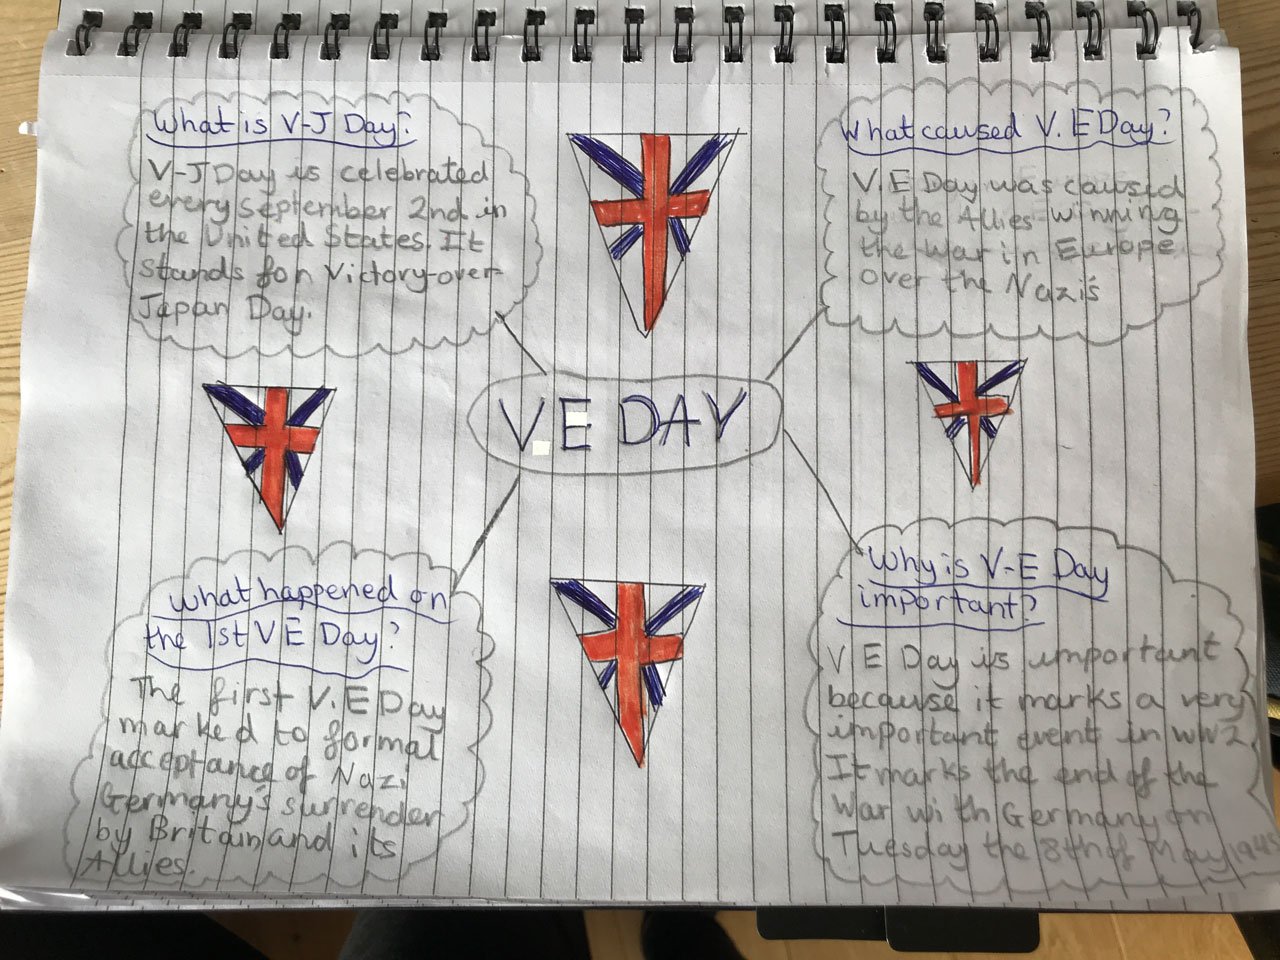 What is V-J Day?
V-J Day is celebrated
every September 2nd in
the United States. It
stands for Victory-over-
Japan Day.
What caused V.E Day?
V E Day was caused
by the Allies winning
the war in Europe
over the Nazi's
V.E DAY
What happened on
the 1st V E Day?
The first V.E Day
marked to formal
acceptance of Nazi
Germany's surrender
by Britain and its
Allies.
Why is V-E Day
important?
V E Day is important
because it marks a very
important event in WW2.
It marks the end of the
war with Germany on
Tuesday the 8th of May 1945